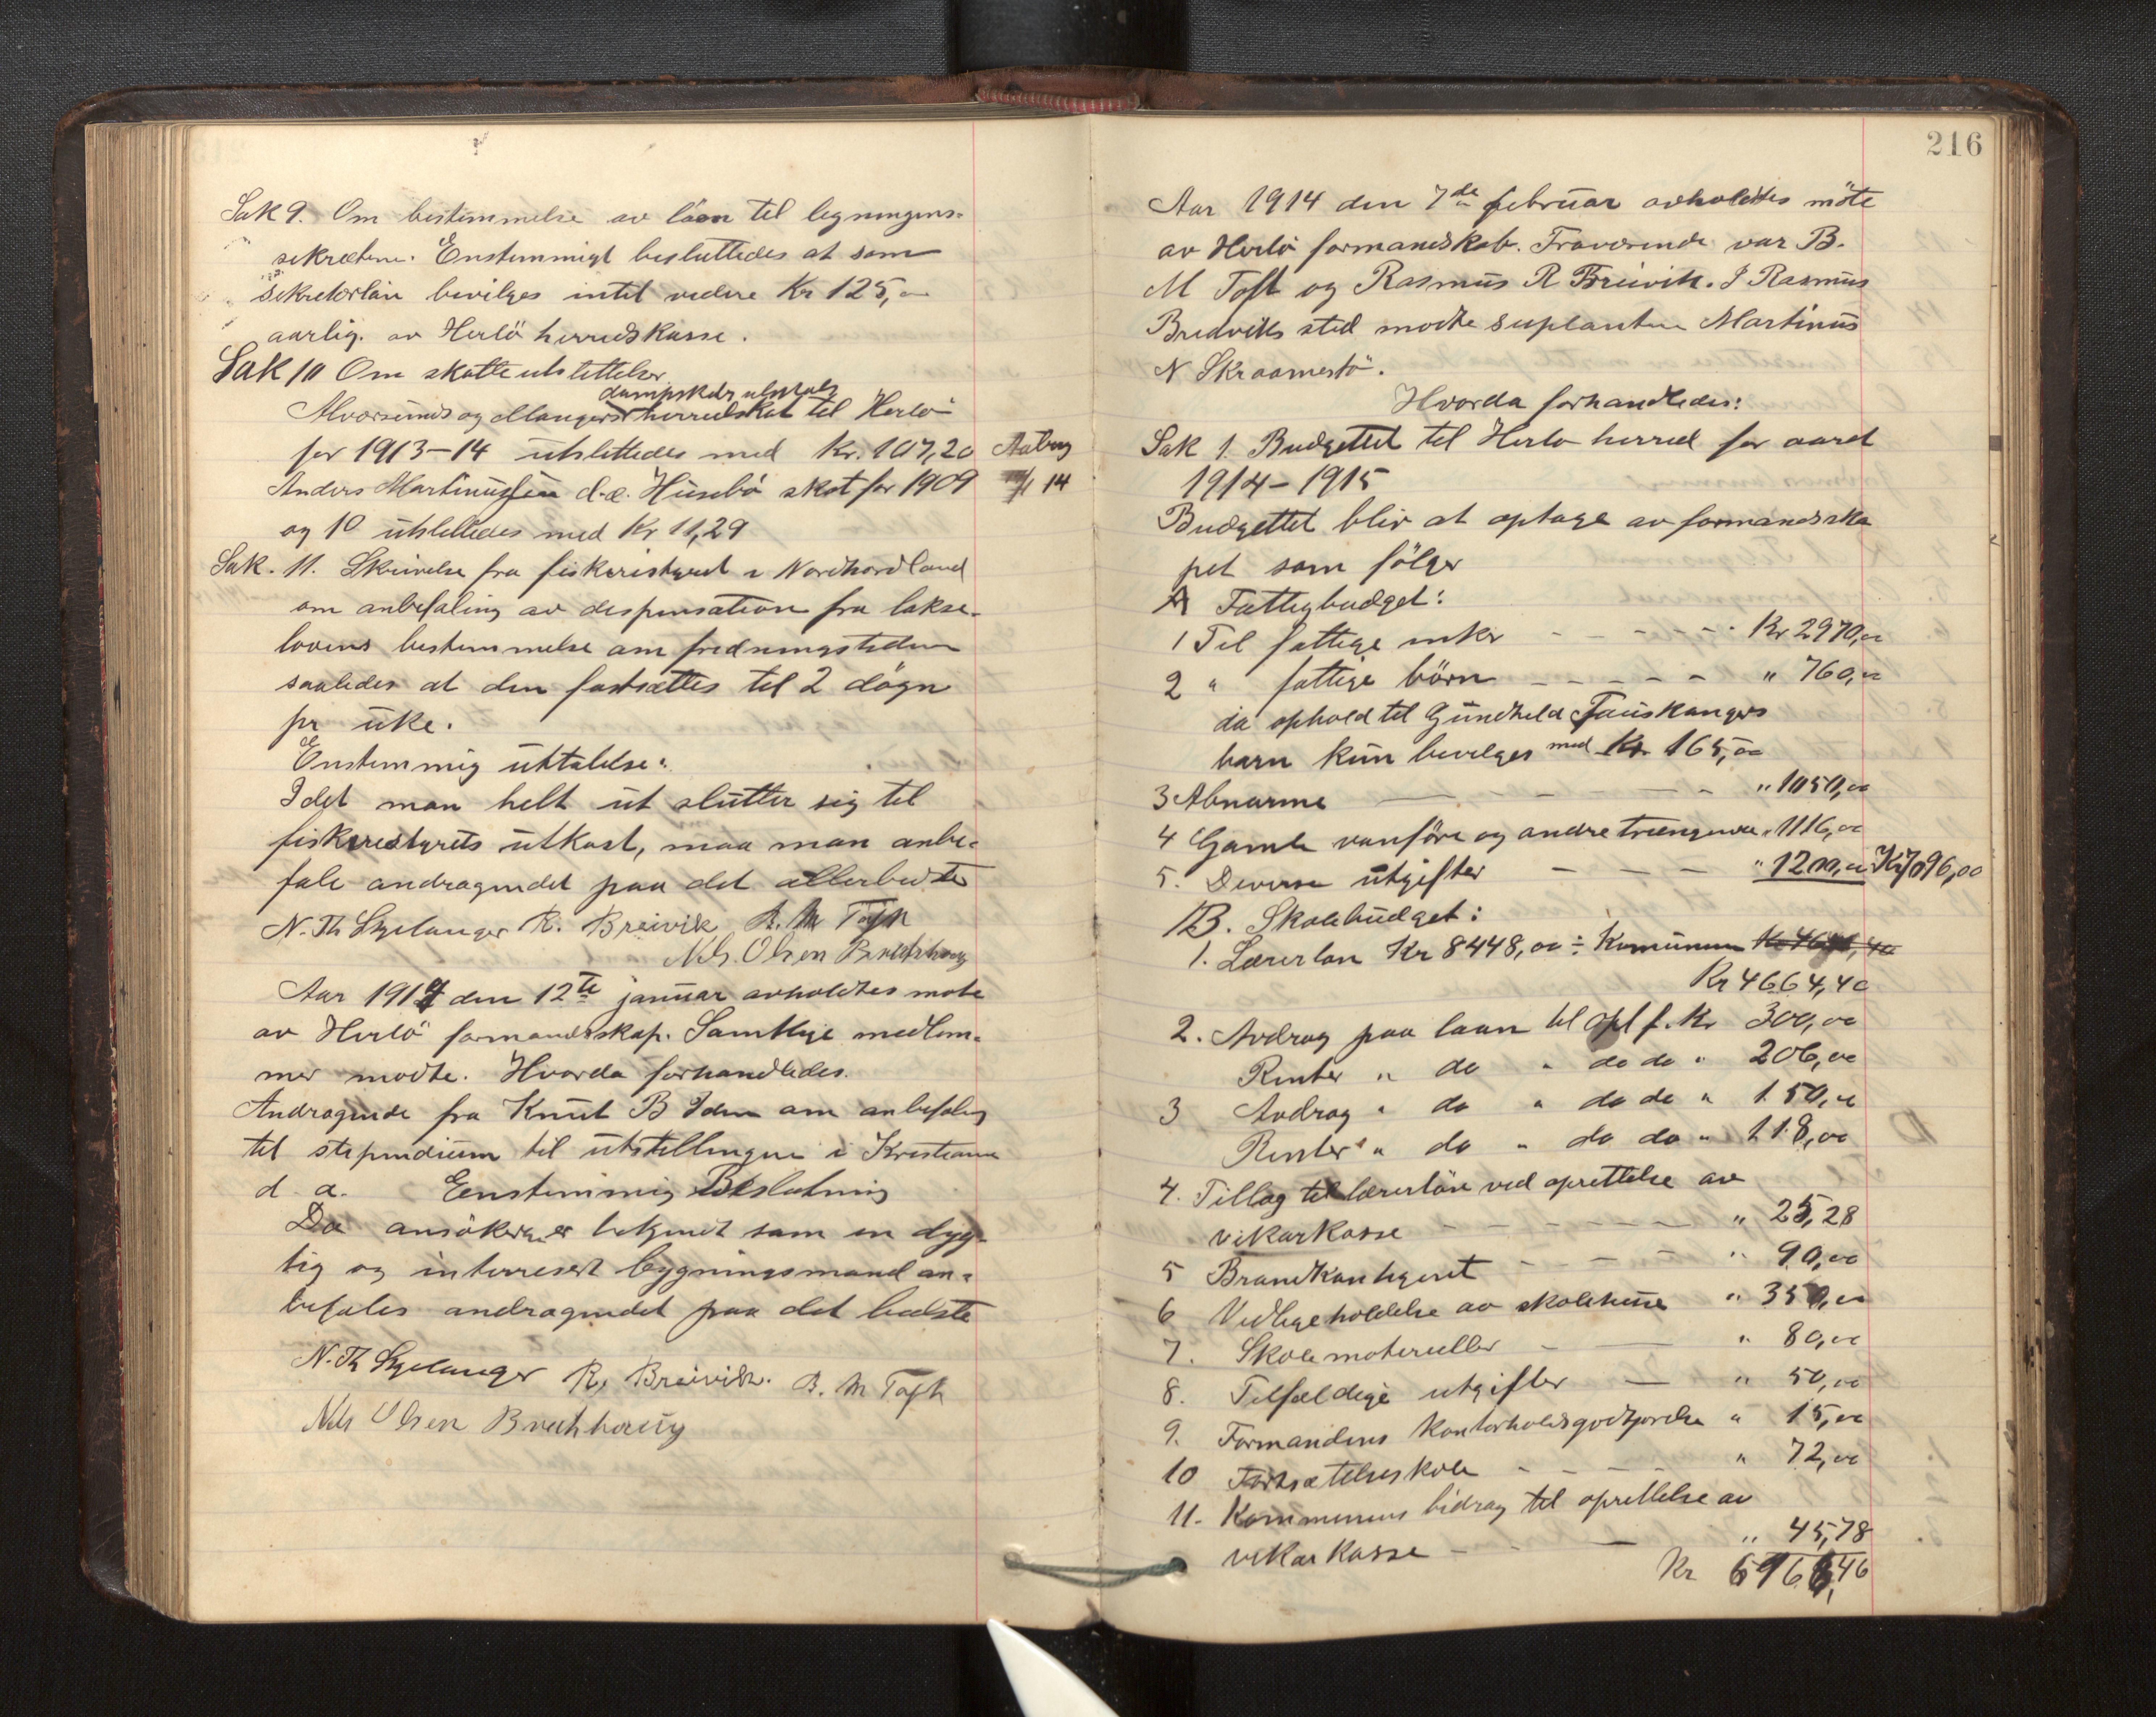 Sak 9. Om bestemmelse av löen til legningens-
sekretær. Enstemmigt besluttedes at som
sekretærlön bevilges intil videre Kr 125,00
aarlig. av Herlö herredskasse.
Sak 10 Om skatteutslettelser
dampskibs utskuls
Alversunds og Mangers herredskat til Herlö
for 1913–14 utslettedes med Kr. 107,20
Anders Martinussen d.æ. Husebö skat for 1909
og 10 utslettedes med Kr 11,29
Aaberg
14
Sak. 11. Skrivelse fra fiskeristyret i Nordhordland
om anbefaling av dispensation fra lakse-
lovens bestemmelse om fredningstiden
saaledes at den fastsættes til 2 dögn
pr uke.
Enstemmig uttalelse:
Idet man helt ut slutter sig til
fiskerestyrets utkast, maa man anbe-
fale andragendet paa det allerbedste
N. Th Skjelanger R. Breivik B. M Toft
Nils Olsen Brathhoug
Aar 1914 den 12te januar avholdtes möte
av Herlö formandskap. Samtlige medlem-
mer mødte. Hvorda forhandledes.
Andragende fra Knut B Iden om anbefaling
til stipendium til utstillingen i Kristiania
d. a. Eenstemmig Beslutning
Da ansökeren er bekjendt som en dyg-
tig og interresert bygningsmand an-
befales andragendet paa det bedste
N. Th Skjelanger R. Breivik. B. M Toft
Nils Olsen Brathhoug
216
Aar 1914 den 7de februar avholdtes möte
av Herlö formandskab. Fraværende var B.
M Toft og Rasmus R Breivik. I Rasmus
Breiviks sted mødte suplanten Martinus
N Skraamestö.
Hvorda forhandledes:
Sak 1. Budgettet til Herlo herred for aaret
1914–1915
Budgettet blir at optage av formandska
pet som fölger
A Fattigbudget:
1 Til fattige enker – – – – – Kr 2970,00
2 " fattige börn – – – – – " 760,00
da ophold til Gundhild Fauskangers
barn kun bevilges med Kr 165,00
3 Abnorme – – – – " 1050,00
4 Gamle vanföre og andre trængende " 1116,00
5. Diverse utgifter – – – " 1200,00 Kr 7096,00
B. Skolebudget:
1. Lærerløn Kr 8448,00 ÷ Komunen
Kr 4664,40
2. Avdrag paa laan til opl f. Kr 300,00
Renter " do " do do " 206,00
3 Avdrag " do " do do " 150,00
Renter " do " do do " 118,00
4. Tillæg til lærerlön ved oprettelse av
vikarkasse – – – – – " 25,28
5 Brandkontigent – – – " 90,00
6 Vedligeholdelse av skolehuse " 350,00
7. Skolematerieller – – " 80,00
8. Tilfældige utgifter – " 50,00
9. Formandens kontorholdsgodtgjørelse " 15,00
10 Fortsættelseskole – – – – " 72,00
11. Kommunens bidrag til oprettelse av
vikarkasse – – – " 45,78
Kr 6166,46